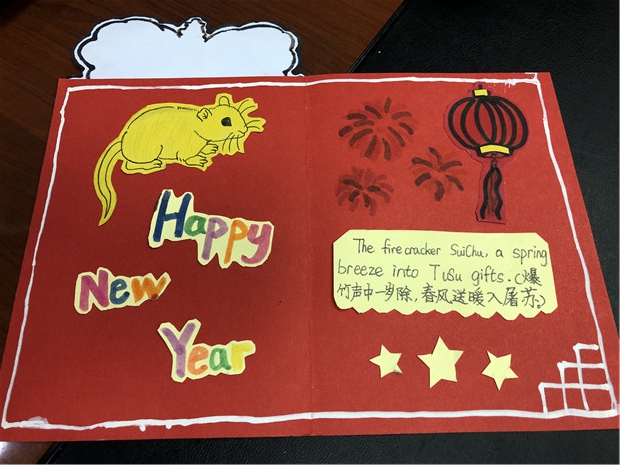 Happy
New
Year
The firecracker SuiChu, a spring
breeze into TuSu gifts.(爆
竹声中一岁除,春风送暖入屠苏.)